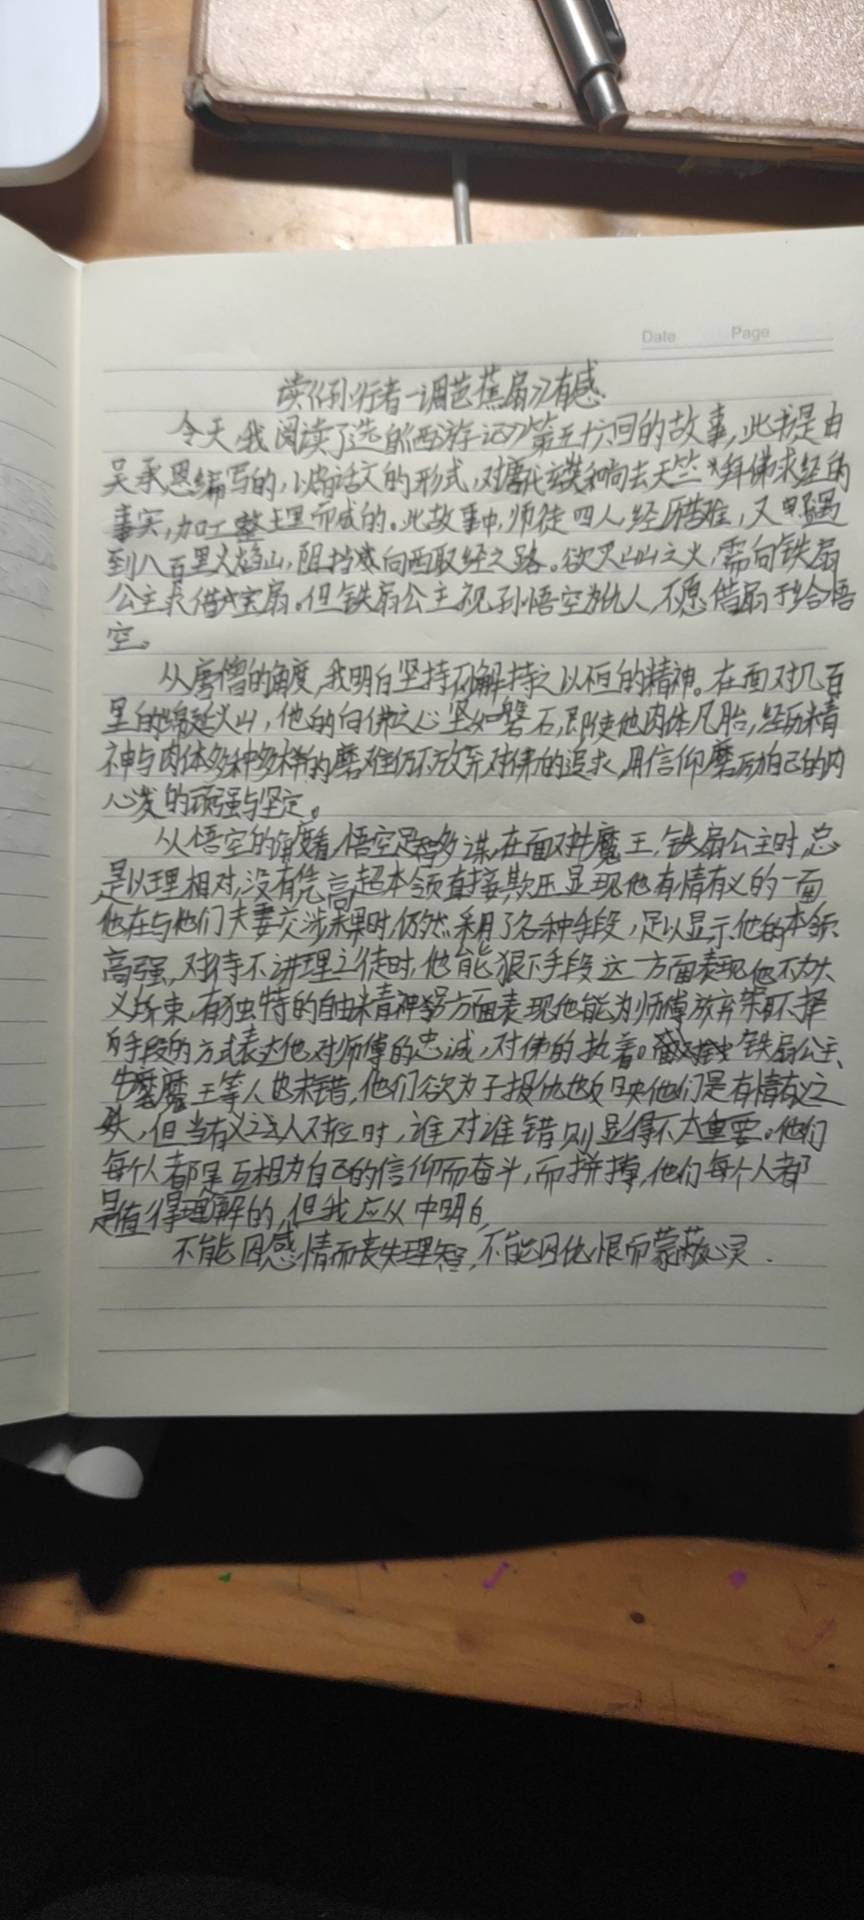 Date Page
读《孙行者一调芭蕉扇》有感.
今天,我阅读了选自《西游记》第五十六回的故事,此书是由
吴承恩编写的,以白话文的形式,对唐代玄奘和尚去天竺拜佛求经的
事实,加工整理而成的。此故事中,师徒四人,经历苦难,又遇
到八百里火焰山,阻挡向西取经之路。欲灭火山之火,需向铁扇
公主求借宝扇。但铁扇公主视孙悟空为仇人,不愿借扇于给悟
空。
从唐僧的角度,我明白坚持不懈持之以恒的精神。在面对几百
里的绵延火山,他的向佛之心坚如磐石,即使他肉体凡胎,经历精
神与肉体多种多样的磨难仍不放弃对佛的追求,用信仰磨励自己的内
心,的顽强与坚定。
从悟空的角度看,悟空足智多谋,在面对牛魔王,铁扇公主时,总
是以理相对,没有凭高超本领直接欺压显现他有情有义的一面
他在与他们夫妻交涉未果时,仍然采用了各种手段,足以显示他的本领
高强,对待不讲理之徒时,他能狠下手段这一方面表现他不为大
义所束,有独特的自由精神另方面表现他能为师傅放弃不择
手段的方式表达他对师傅的忠诚,对佛的执着。铁扇公主、
牛魔王等人也未错,他们欲为子报仇也反映他们是有情有义之
人,但当有义之人对立时,谁对谁错则显得不太重要。他们
每个人都是互相为自己的信仰而奋斗,而拼搏,他们每个人都
是值得理解的,但我应从中明白,
不能因感情而丧失理智,不能因仇恨而蒙蔽心灵.